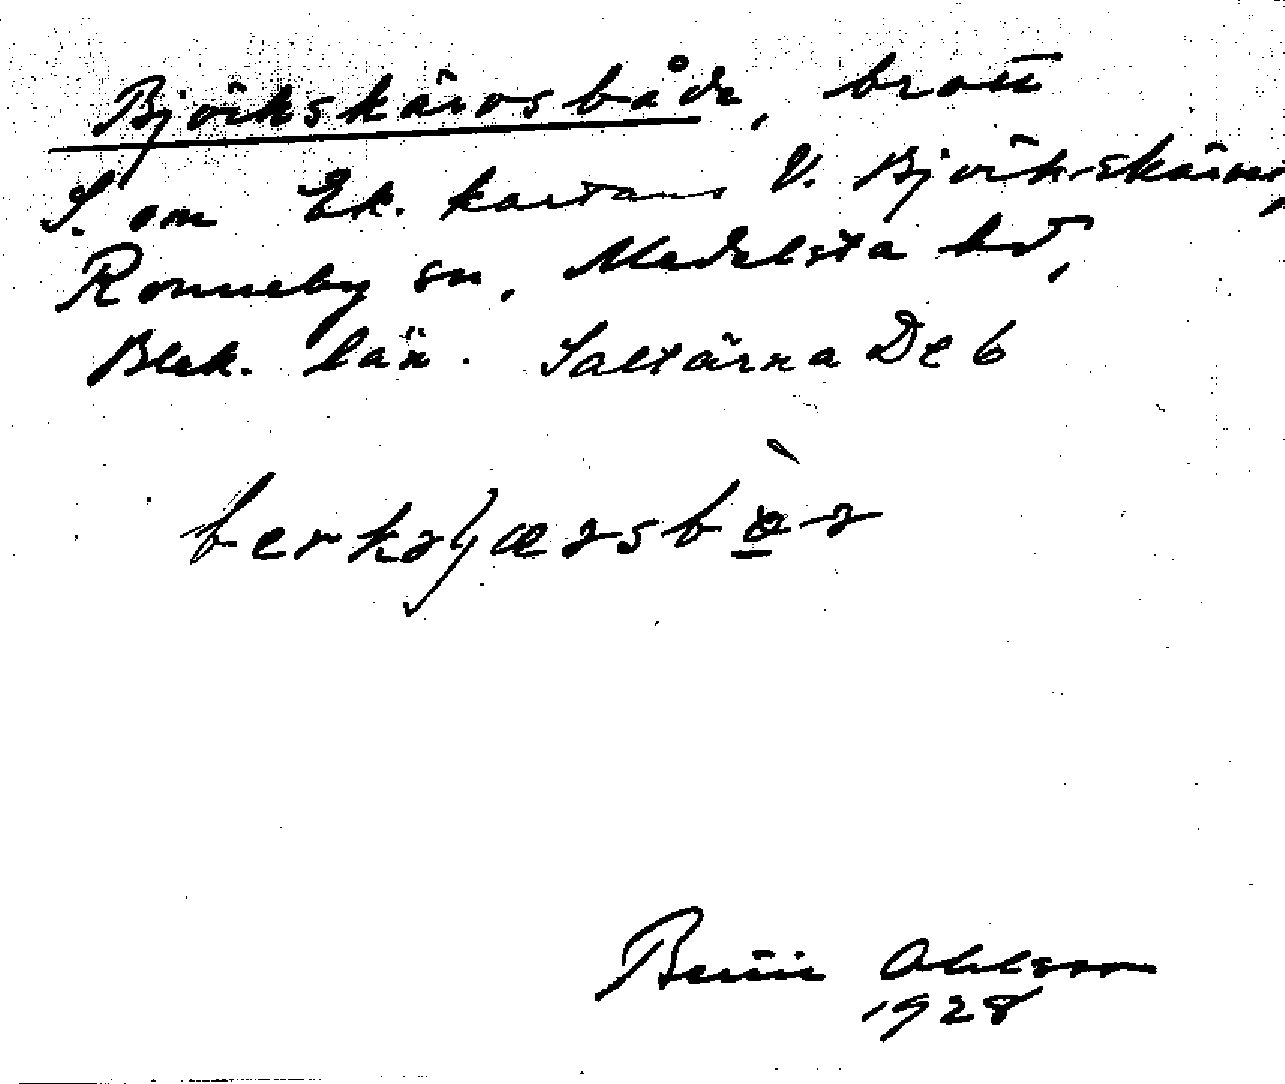 Björkskärsbåde, brott
S. om Ek. kartans V. Björkskären,
Ronneby sn, Medelsta hd,
Blek. län. Saltärna De 6
Bertil Ohlsson
1928